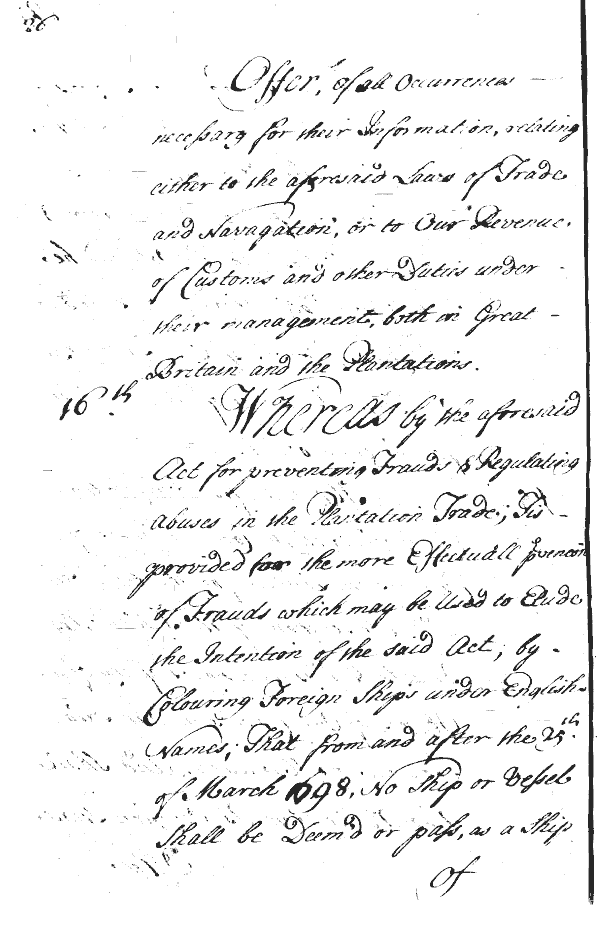 26
Offer, of all Occurrences
necessary for their Information, relating
either to the aforesaid Laws of Trade
and Navagation, or to Our Revenue
of Customs and other Duties under
their management, both in Great
Britain and the Plantations.
16th Whereas by the aforesaid
Act for preventing Frauds & Regulating
Abuses in the Plantation Trade; Tis
provided for the more Effectuall prvencon
of Frauds which may be Used to Elude
the Intention of the said Act; by
Colouring Foreign Ships under English
Names; That from and after the 25th
of March 1698, No Ship or Vessel
shall be Deem'd or pass, as a Ship
Of